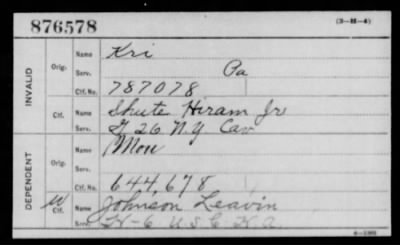 876578 (3-H-4)
INVALID
Orig.
Name Kri
Serv. Pa
Ctf. No. 787078
Ctf.
Name Shute Hiram Jr
Serv. G 26 N.Y Cav
DEPENDENT
Orig.
Name Mou
Serv.
Ctf. No. 644,678
W Ctf.
Name Johnson Leavin
Serv. H-6 U.S.C.H.A.